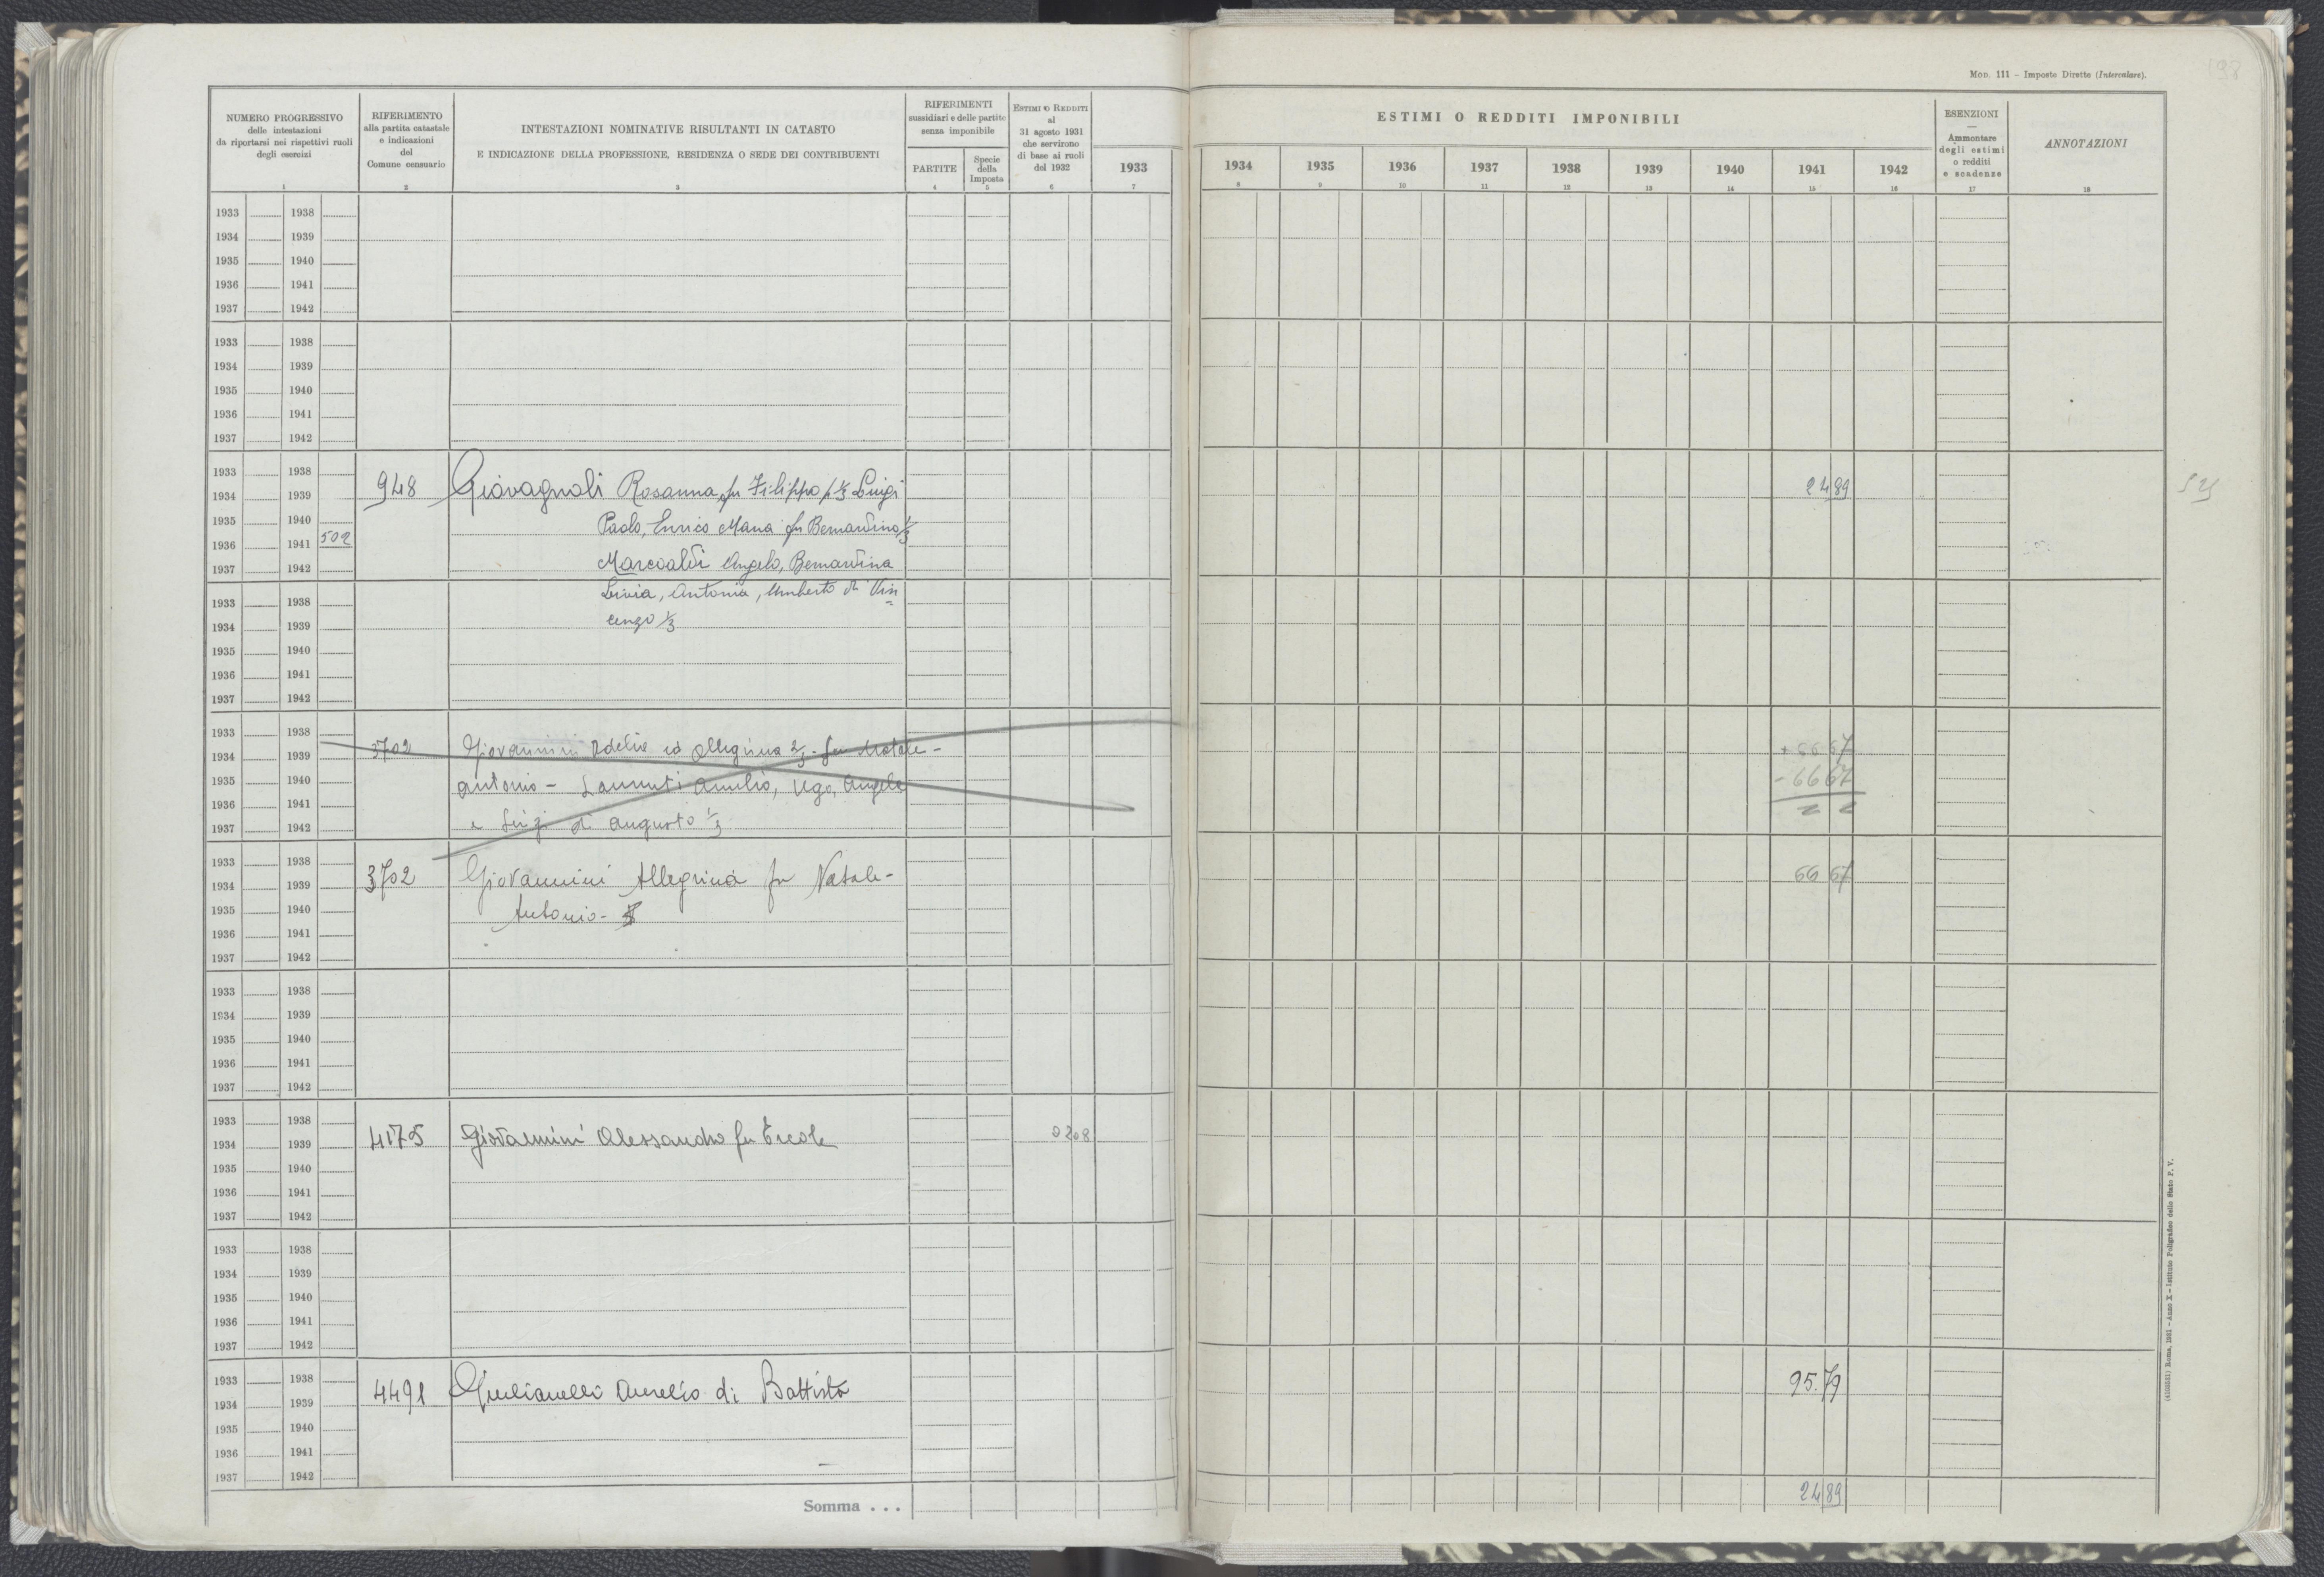 Mod. 111 - Imposte Dirette (Intercalare).
198
NUMERO PROGRESSIVO
delle intestazioni
da riportarsi nei rispettivi ruoli
degli esercizi
1
RIFERIMENTO
alla partita catastale
e indicazioni
del
Comune censuario
2
INTESTAZIONI NOMINATIVE RISULTANTI IN CATASTO
E INDICAZIONE DELLA PROFESSIONE, RESIDENZA O SEDE DEI CONTRIBUENTI
3
RIFERIMENTI
sussidiari e delle partite
senza imponibile
PARTITE
4
Specie
della
Imposta
5
Estimi o Redditi
al
31 agosto 1931
che servirono
di base ai ruoli
del 1932
6
1933
7
ESTIMI O REDDITI IMPONIBILI
1934 1935 1936 1937 1938 1939 1940 1941 1942
8 9 10 11 12 13 14 15 16
ESENZIONI
—
Ammontare
degli estimi
o redditi
e scadenze
17
ANNOTAZIONI
18
1933 1938
1934 1939
1935 1940
1936 1941
1937 1942
1933 1938
1934 1939
1935 1940
1936 1941
1937 1942
1933 1938
1934 1939 948 Giovagnoli Rosanna fu Filippo p 1/3 Luigi 24 89
1935 1940 Paolo, Enrico Maria fu Bernardino 1/3
1936 1941 502
1937 1942 Marcoaldi Angelo, Bernardina
1933 1938 Livia, Antonia, Umberto di Vin
1934 1939 cenzo 1/3
1935 1940
1936 1941
1937 1942
1933 1938
1934 1939 3702 Giovannini Adelia ed Allegrina 2/3 - fu Natale - + 66 67
1935 1940 Antonio - Aurelio, Ugo, Angelo - 66 67
1936 1941
1937 1942 e Luigi di Augusto 1/3
1933 1938
1934 1939 3702 Giovannini Allegrina fu Natale- 66 67
1935 1940 Antonio-
1936 1941
1937 1942
1933 1938
1934 1939
1935 1940
1936 1941
1937 1942
1933 1938
1934 1939 4175 Giovannini Alessandro fu Ercole 0 20 8
1935 1940
1936 1941
1937 1942
1933 1938
1934 1939
1935 1940
1936 1941
1937 1942
1933 1938
1934 1939 4491 Giulianelli Aurelio di Battista 95.79
1935 1940
1936 1941
1937 1942
Somma . . . 24 89
Roma, 1931 - Anno X - Istituto Poligrafico dello Stato P. V.